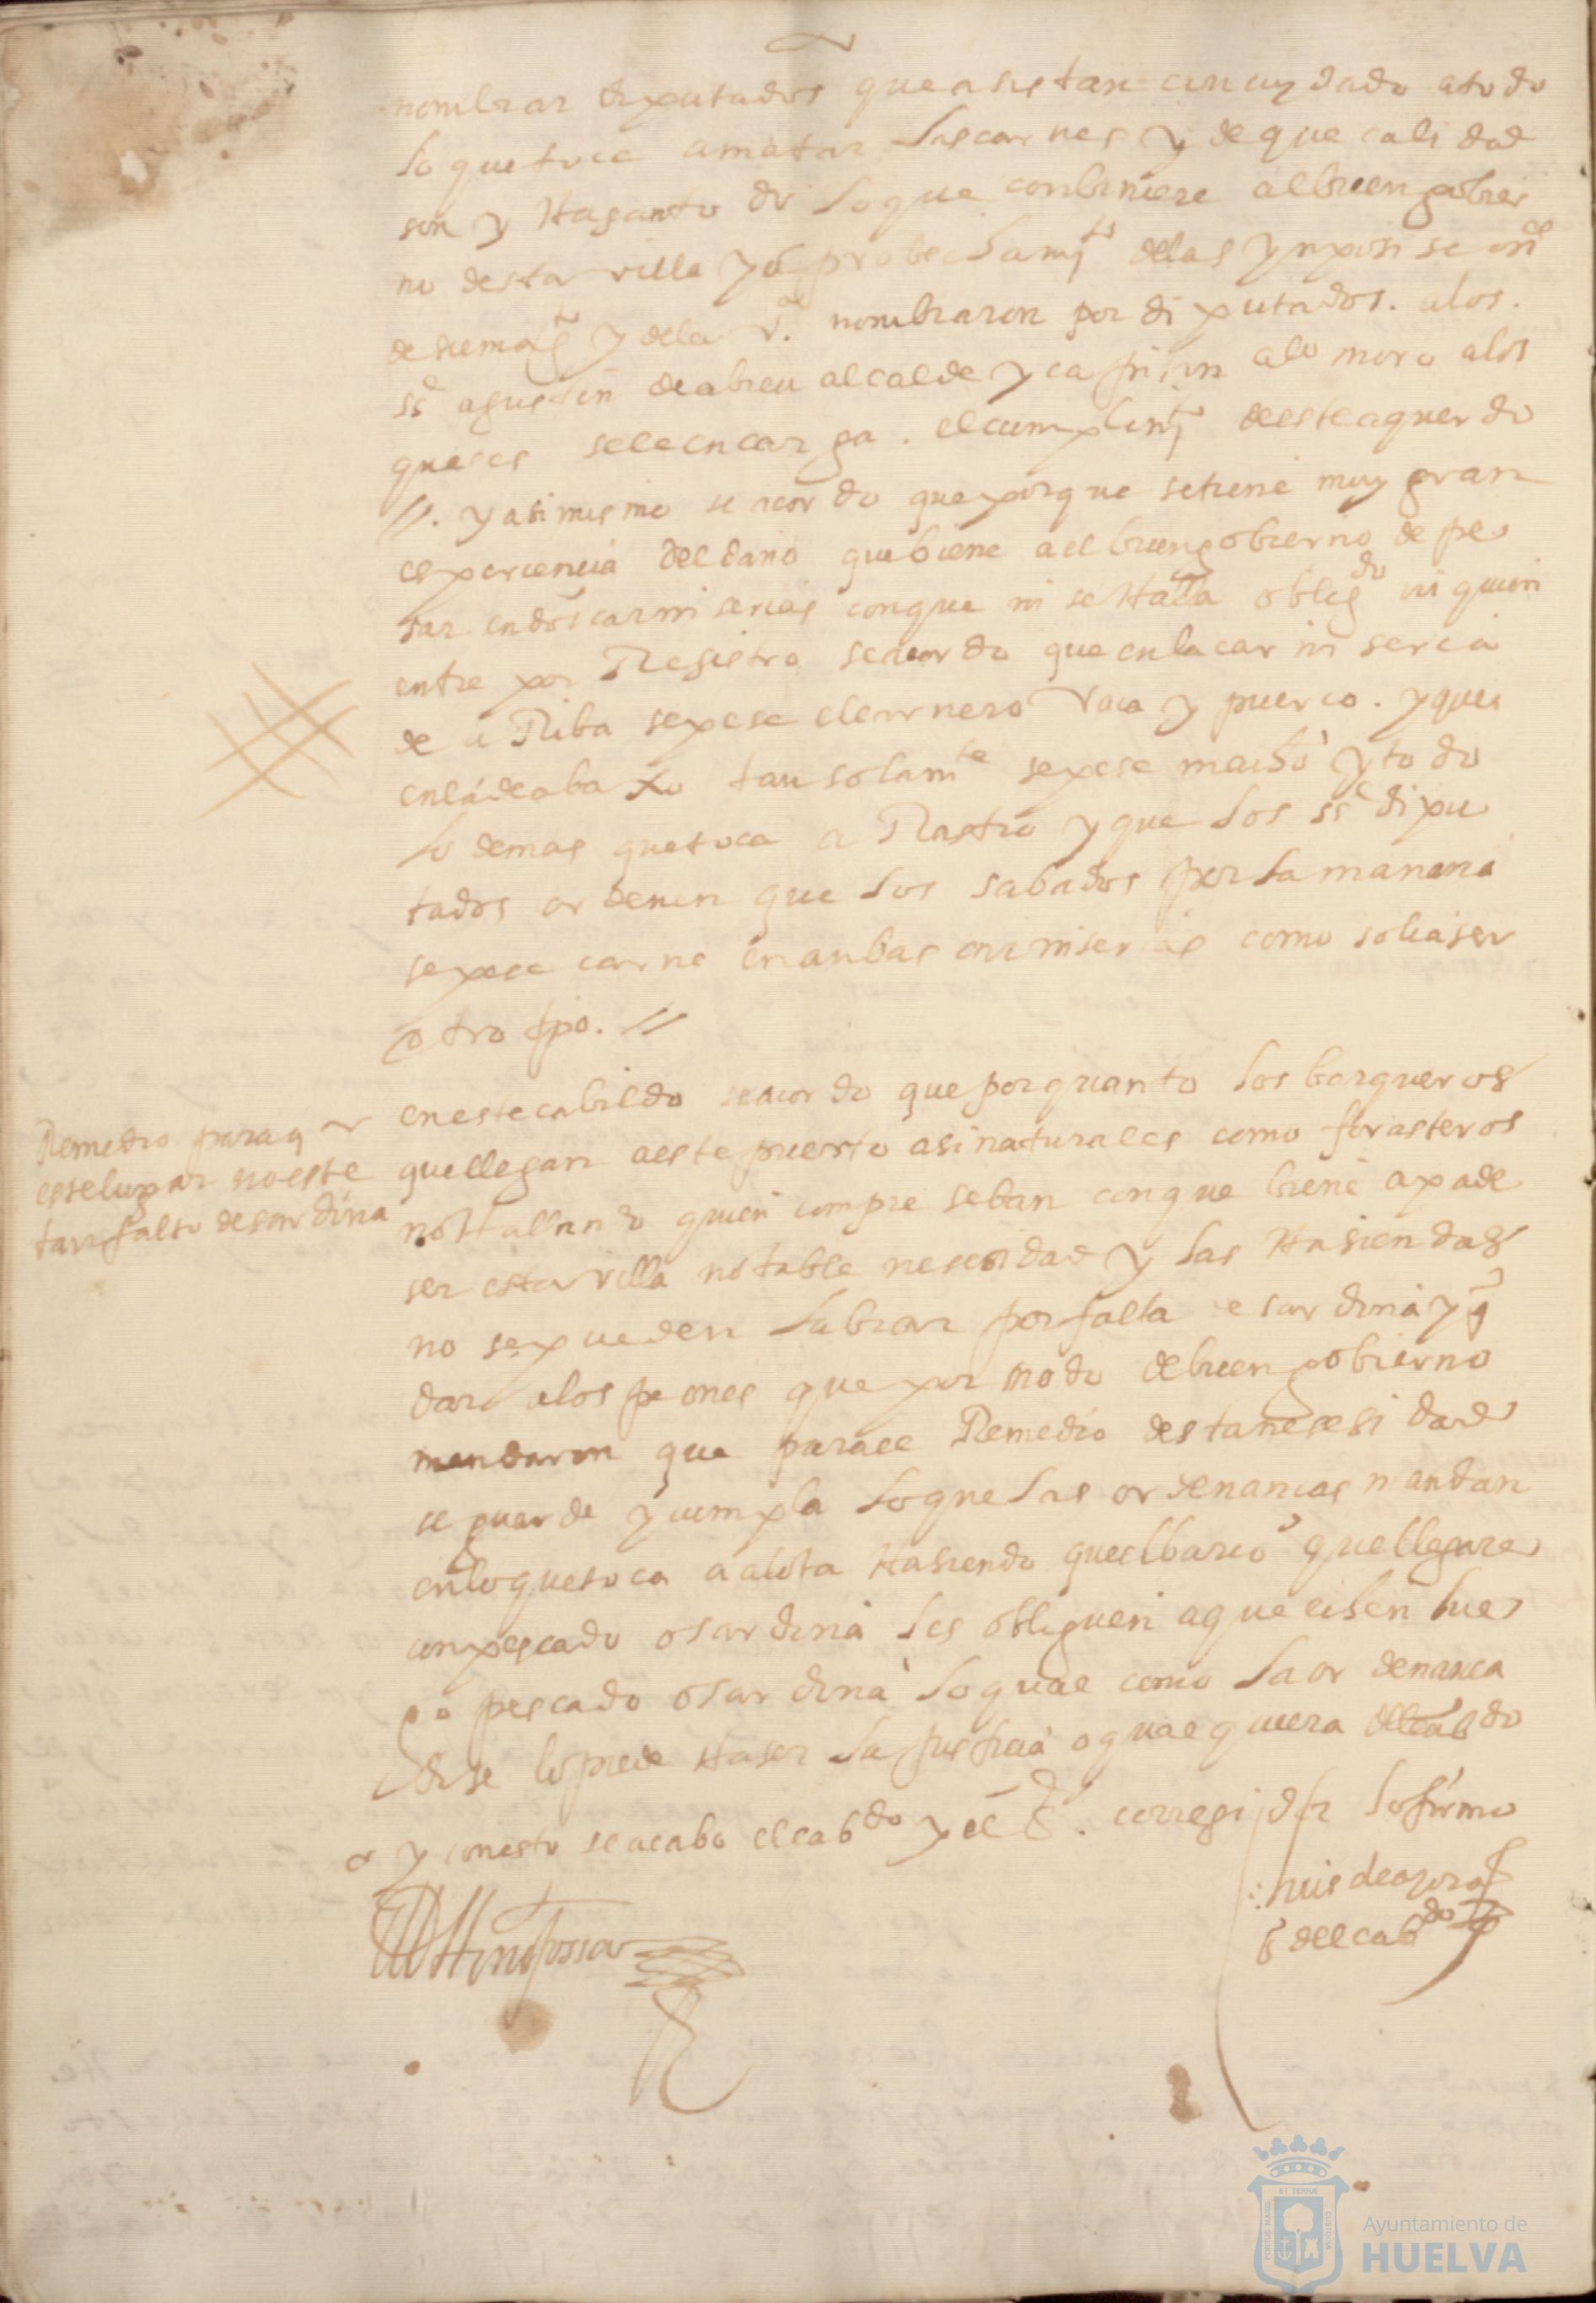 nombrar diputados que asistan con cuydado a todo
lo que toca a matar las carnes y de que calidad
son y Hagan todo lo que conbiniere al buen gobier
no desta villa y a probechamtos de las ynposisiones
nombraron por diputados. a los.
ss agustin de abreu alcalde y capitan alo moro a los
quales se le encarga. el cumplimto deste aquerdo
//. y asi mismo se acordo que porque se tiene muy gran
esperiencia del daño que biene a el buen gobierno de pe
sar en dos carniserias con que ni se Halla obligdo ni quien
entre por Registro se acordo que en la carniseria
de aRiba se pese el carnero vaca y puerco. y que
en la de abaxo tan solamte se pese macho y todo
lo demas que toca a Rastro y que los sses dipu
tados ordenen que los sabados por la manana
se pese carne en anbas carniserias como solia ser
otro tpo. //
Remedio para q
este lugar no este
tan falto de sardina
en este cabildo se acordo que por quanto los barqueros
que llegan a este puerto asi naturales como forasteros
no Hallando quien compre se ban con que biene a pade
ser esta villa notable nesesidad y las Hasiendas
no se pueden labrar por falta de sardina y q
dar a los peones que por modo de buen gobierno
mandaron que para el Remedio desta nesesidad
se guarde y cumpla lo que las ordenancas mandan
en lo que toca a alota Hasiendo que el barco que llegare
con pescado o sardina les obliguen a que echen lue
go pescado o sardina lo qual como la ordenanca
dise lo puede Haser la justicia o qualquiera del cabdo
y con esto se acabo el cabdo y el sr. corregidor lo firmo
Hinojossa
luis de
del cabdo
Ayuntamiento de
HUELVA